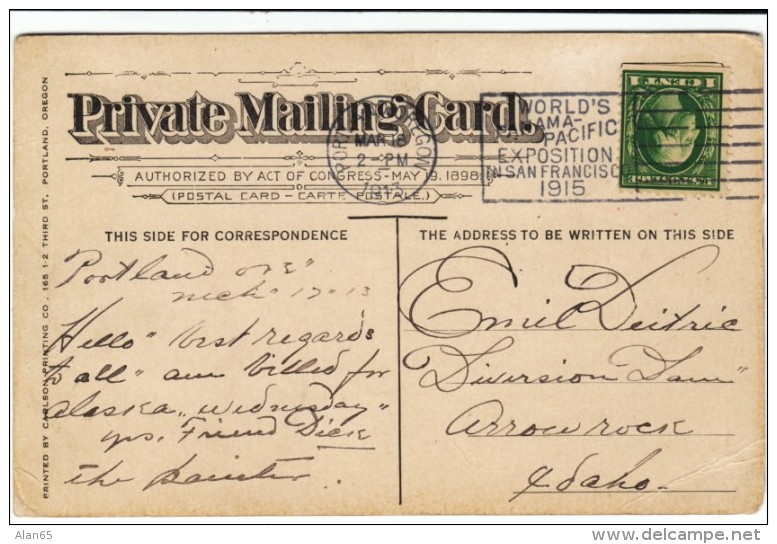 Private Mailing Card.
AUTHORIZED BY ACT OF CONGRESS-MAY 19, 1898.
(POSTAL CARD - CARTE POSTALE.)
PORTLAND OREGON
MAR 18
2-PM
1913
WORLD'S
PANAMA-
PACIFIC
EXPOSITION
IN SAN FRANCISCO
1915
1 CENT 1
U.S. POSTAGE
THIS SIDE FOR CORRESPONDENCE
THE ADDRESS TO BE WRITTEN ON THIS SIDE
Portland ore"
Mch" 17" 13
Hello" best regards
to all" am billed for
alaska,, wednesday"
yrs. Friend Dick
the Painter
Emil Deitric
Diversion Dam"
Arrow rock
Idaho.
PRINTED BY CARLSON PRINTING CO. 165 1-2 THIRD ST. PORTLAND, OREGON
Alan65
www.delcampe.net